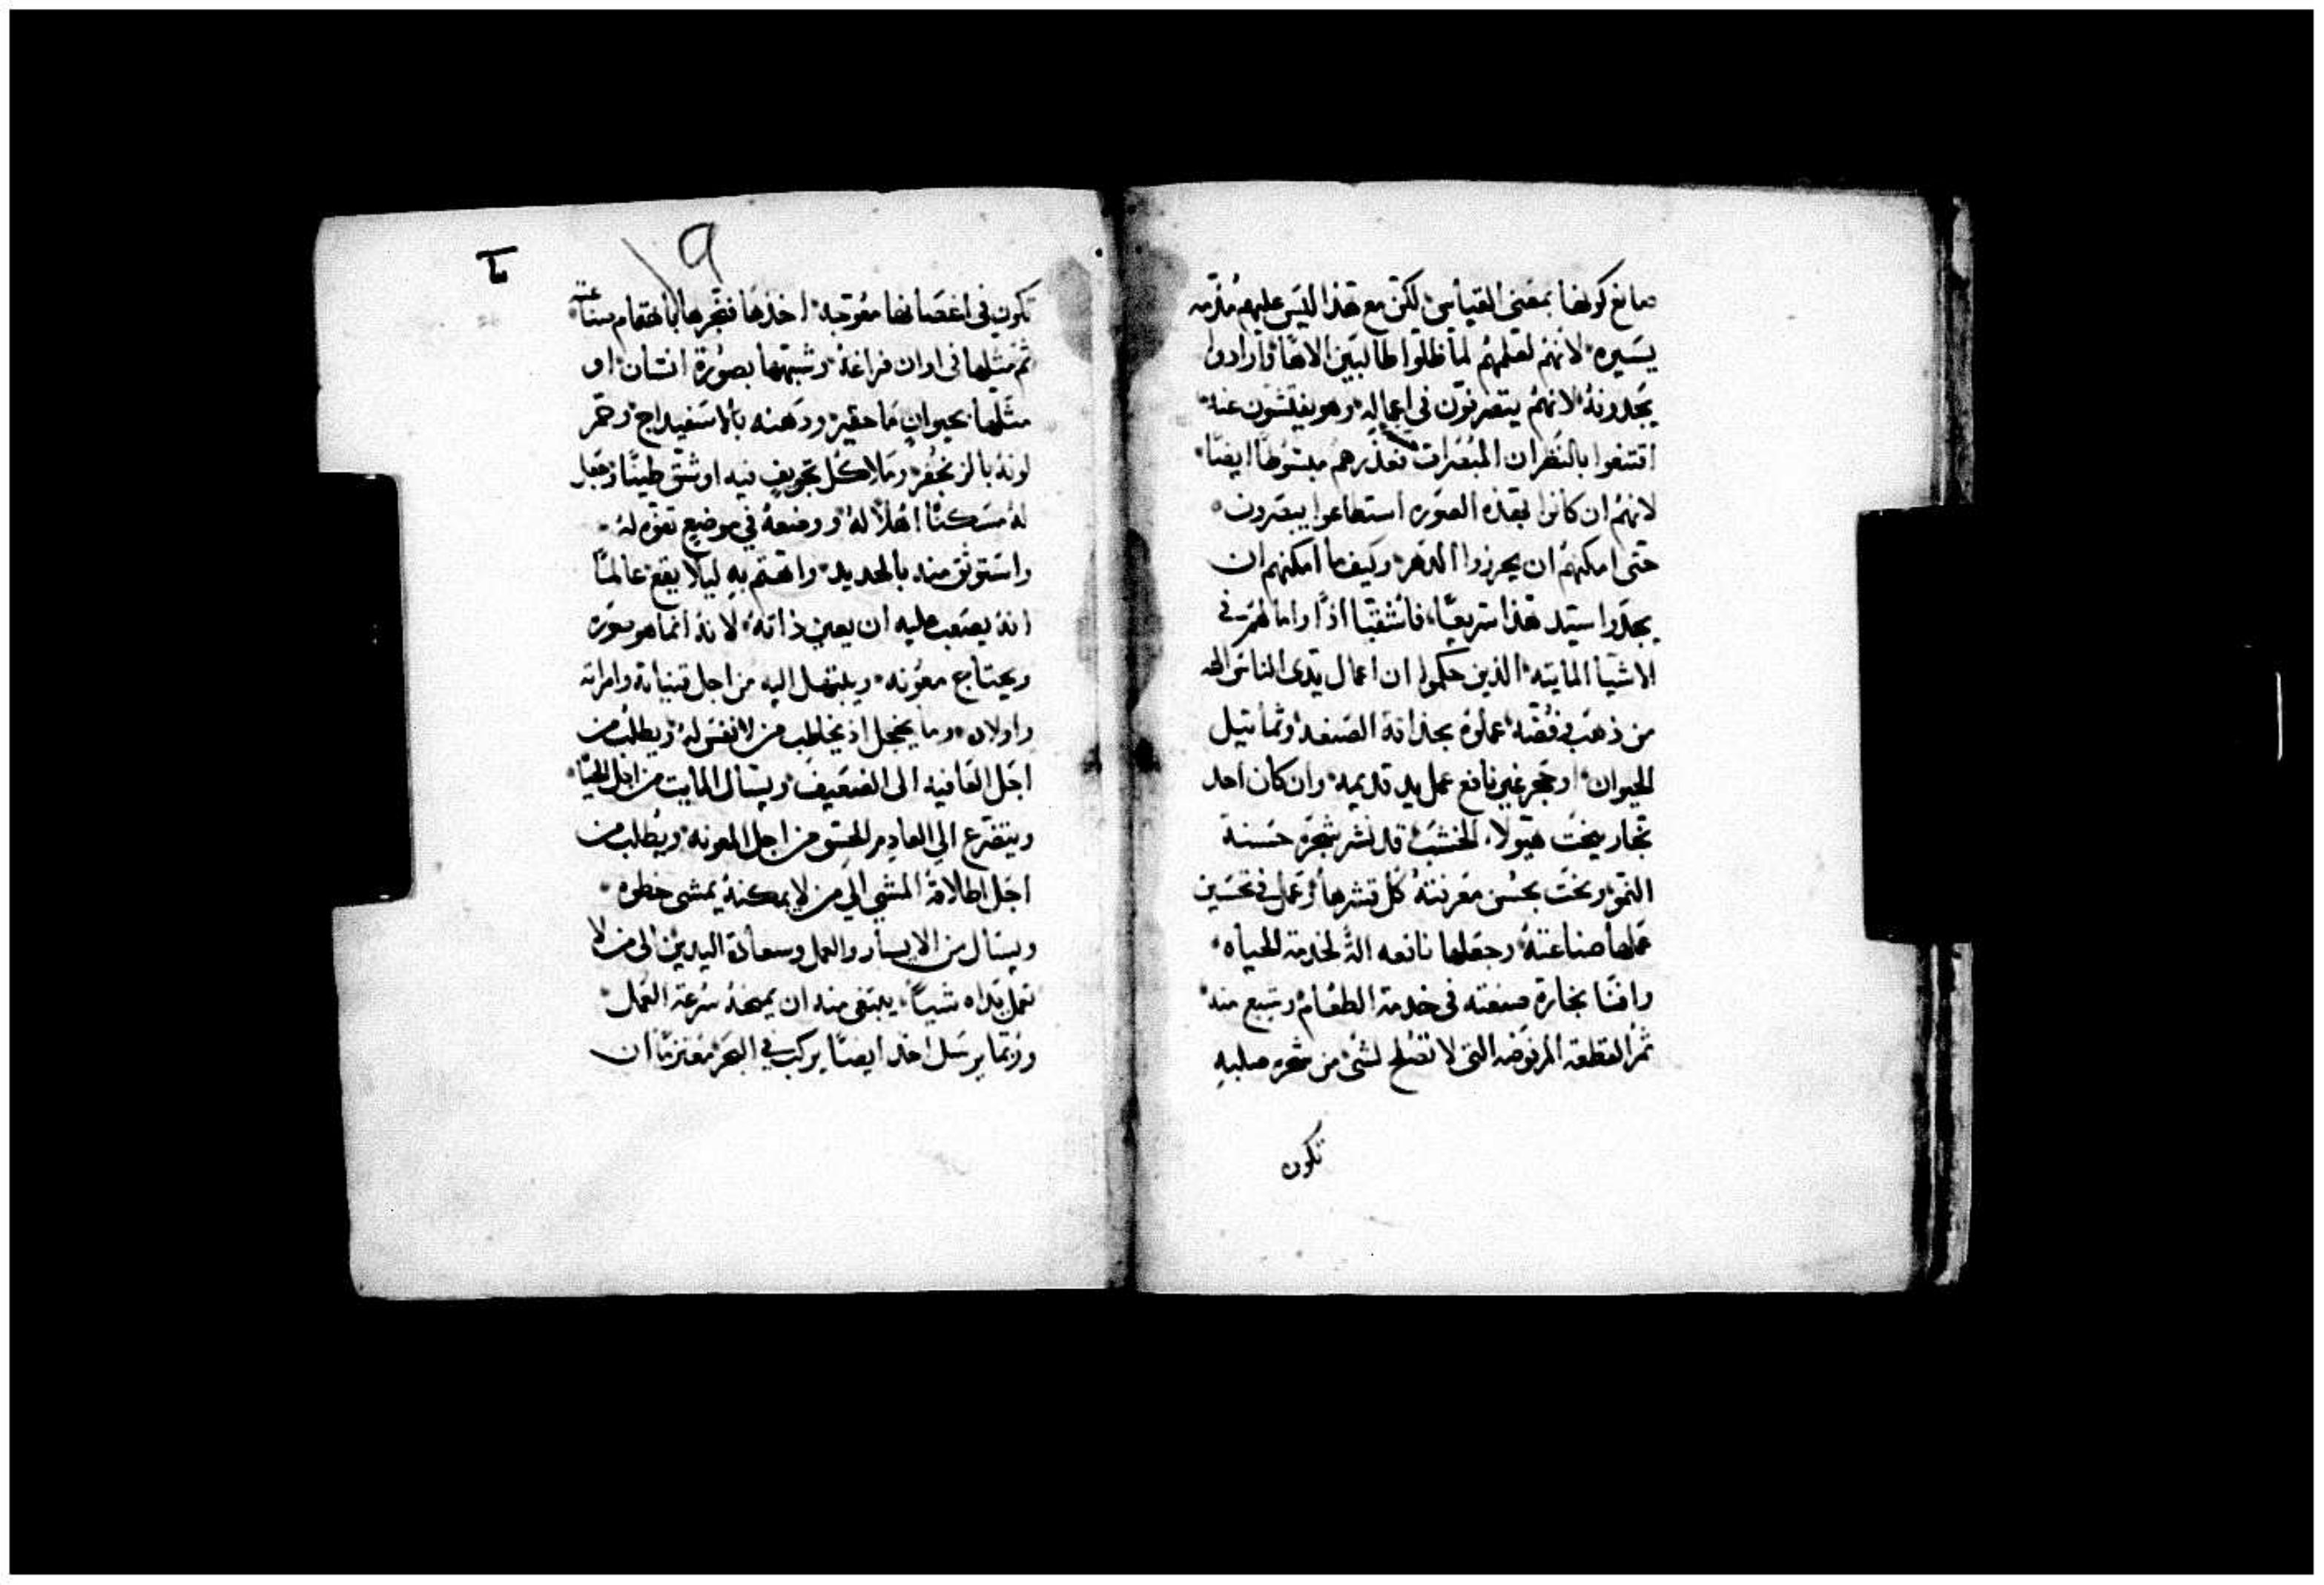 صانع كونها بمعنى القياس لكن مع هذا ليس عليهم مذمه
يسيره لانهم لعلهم لما ظلوا طالبين الاها وارادوا
يجدونه لانهم يتصرفون في اعماله وهو يفتشون عنه
اقتنعوا بالنظر ان المبصرات فعذرهم مبسوطا ايضا
لانهم ان كانوا بهذه الصوره استطاعوا يبصرون
حتى امكنهم ان يحرزوا الدهر وكيف ما امكنهم ان
يجدوا سيد هذا سريعا فاشقيا اذا وامالهم في
الاشيا المايته الذين حكموا ان اعمال يدى الناس الهه
من ذهب وفضه عملوه بحذاقة الصنعه وتماثيل
الحيوان او حجر غير نافع عمل يد قديمه وان كان احد
نجار ينحت هيولا الخشب قد نشر شجره حسنة
النمو ونحت بحسن معرفته كل قشرها وعمل في تحسين
عملها صناعته وجعلها نافعه الة لخدمة الحياه
وافنا نجارة صنعته في خدمة الطعام وشبع منه
ثم القطعه المرفوضه التي لا تصلح لشي من شجره صلبه
تكون
٩
تكون في اغصانها معوجه اخذها فنجرها باهتمام
ثم مثلها في اوان فراغه وشبهها بصورة انسان او
مثلها بحيوان ما حقير ودهنه بالاسفيداج وحمر
لونه بالزنجفر وملا كل تجويف فيه او شق طينا وجعل
له مسكنا اهلا له ووضعه في موضع
واستوثق منه بالحديد واهتم به ليلا يقع عالما
انه يصعب عليه ان يعين ذاته لانه انما هو صورة
ويحتاج معونه ويبتهل اليه من اجل قنياته وامراته
واولاده وما يخجل اذ يخاطب من لا نفس له ويطلب من
اجل العافيه الى الضعيف ويسال المايت من اجل الحيا
ويتضرع الي العادم الحس من اجل المعونه ويطلب من
اجل اطلاقة المشي الي من لا يمكنه يمشي خطوه
ويسال من الايسار والعمل وسعادة اليدين الى من لا
تعمل يداه شيا يبتغي منه ان يمنحه سرعة العمل
وربما يرسل احد ايضا يركب في البحر معتزما ان